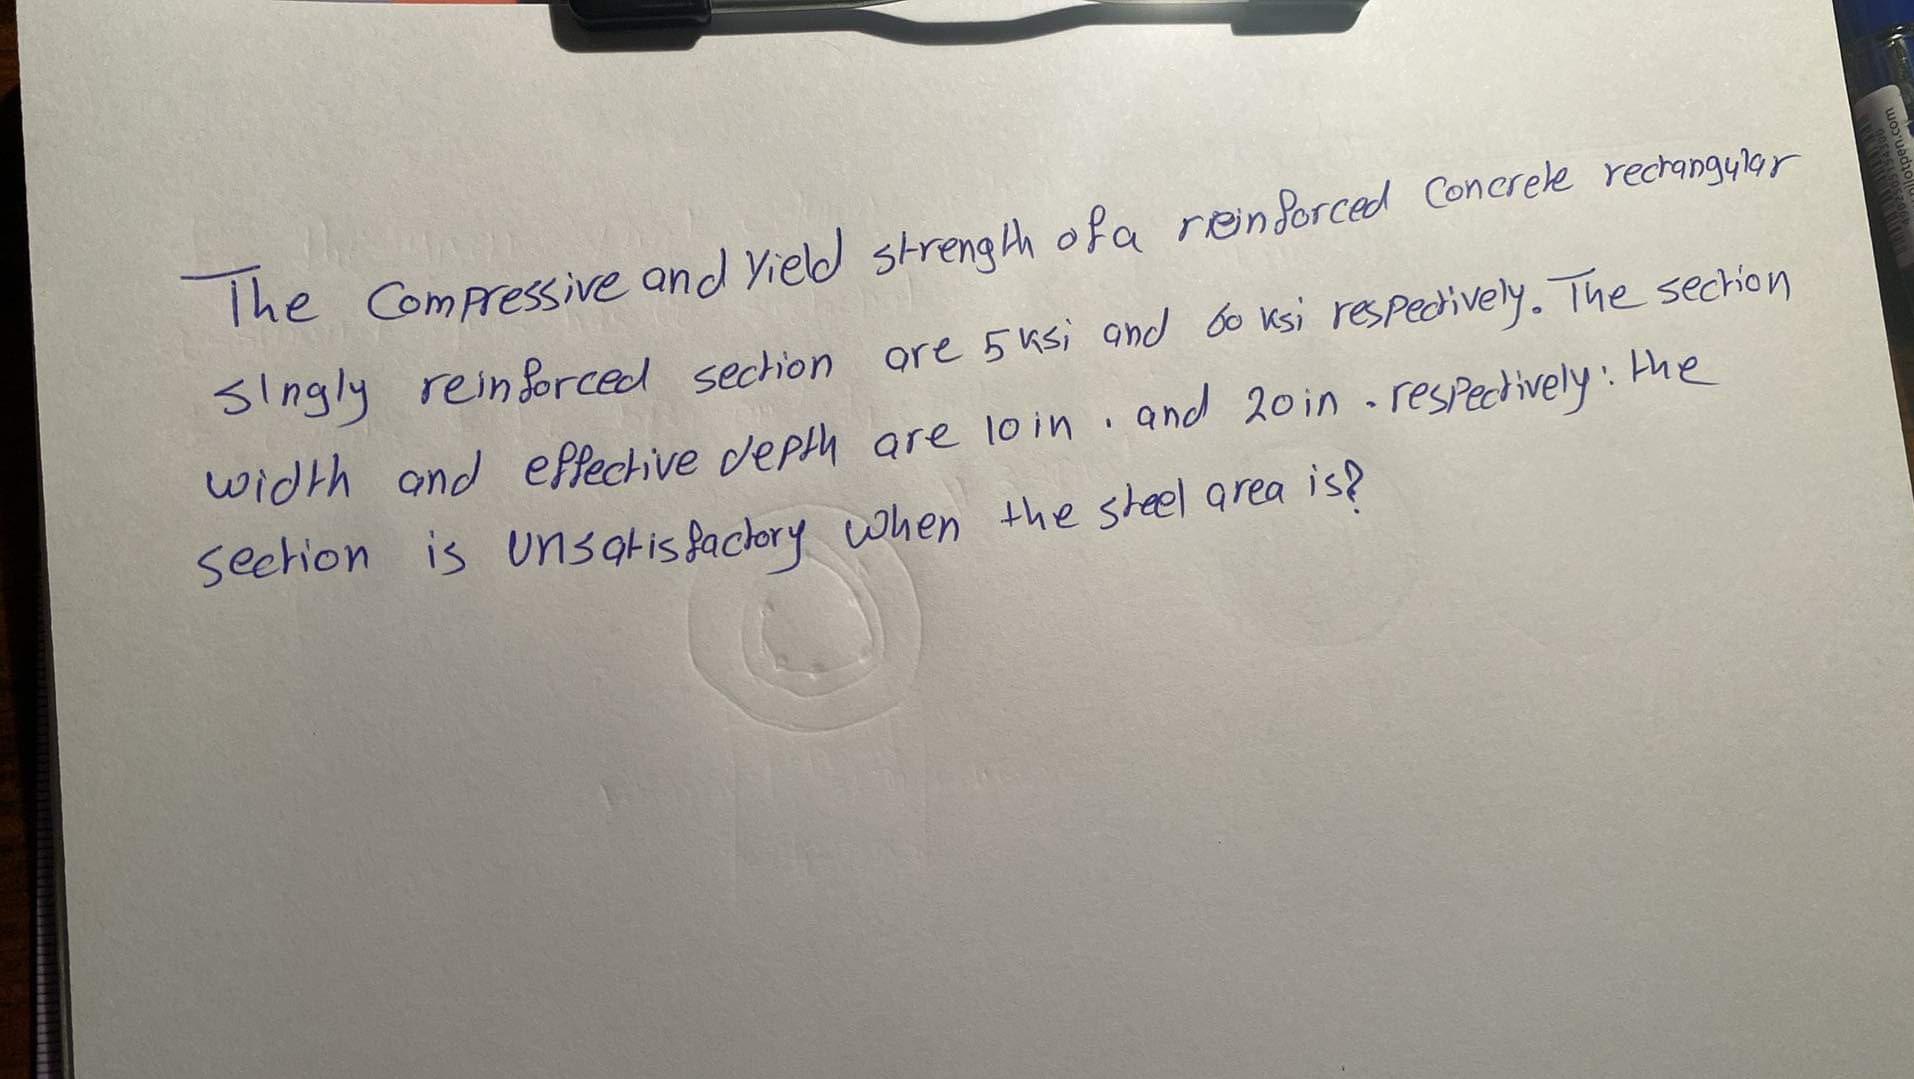 The Compressive and Yield strength of a reinforced Concrete rectangular
singly reinforced section are 5 ksi and 60 ksi respectively. The section
width and effective depth are 10 in . and 20 in . respectively: the
section is unsatisfactory when the steel area is?